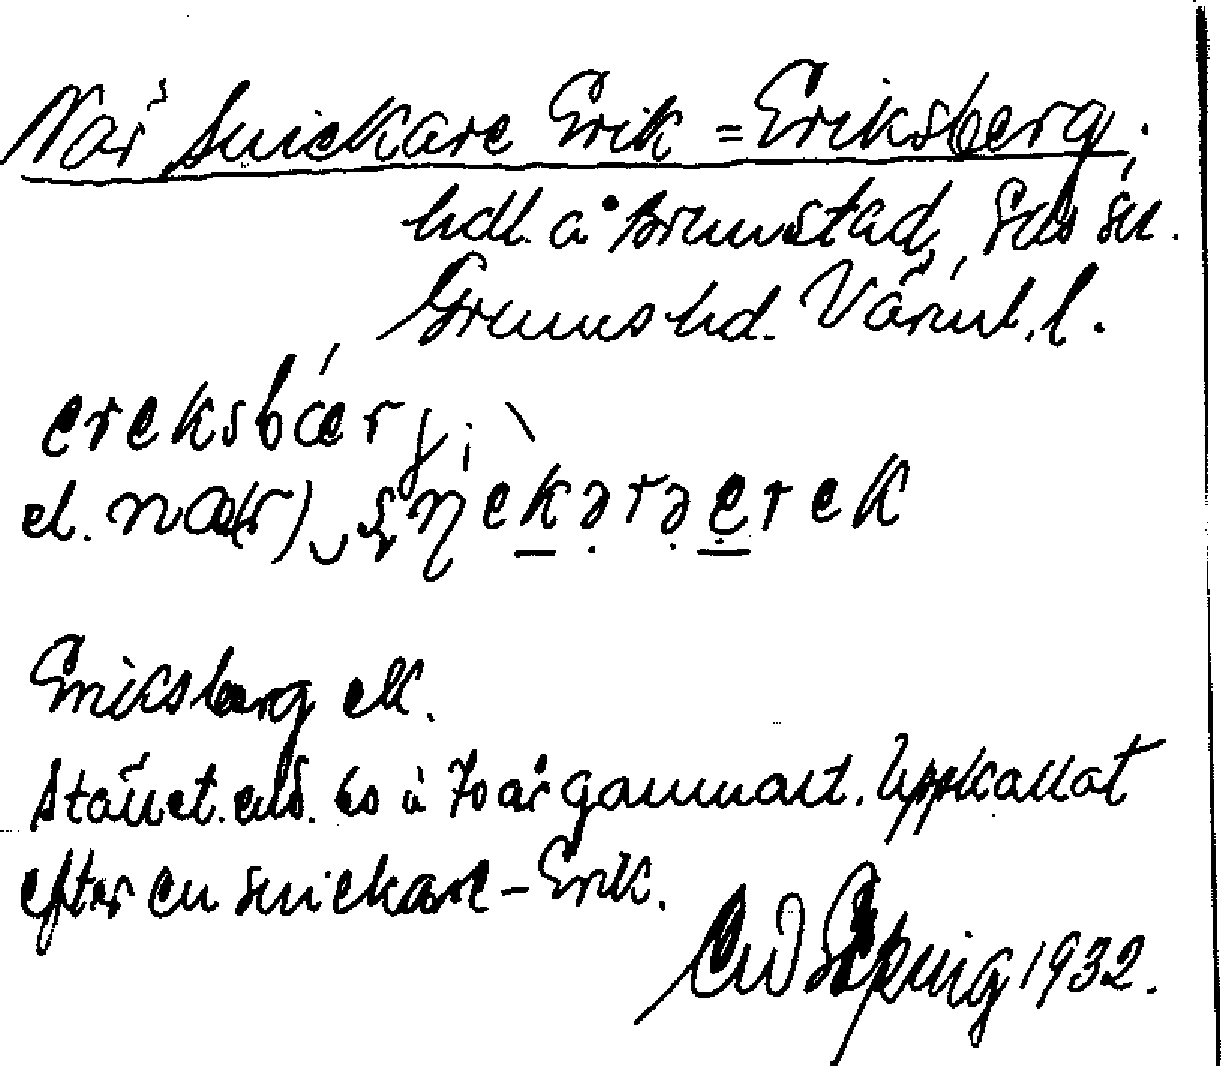 När snickare Erik = Eriksberg,
hdl. å Brunstad, sn.
Grums hd. Värml. l.
ereksbær
el. næ(r)
Eriksberg ell.
Stället. 60 à 70 år gammalt. Uppkallat
efter en snickare - Erik.
1932.